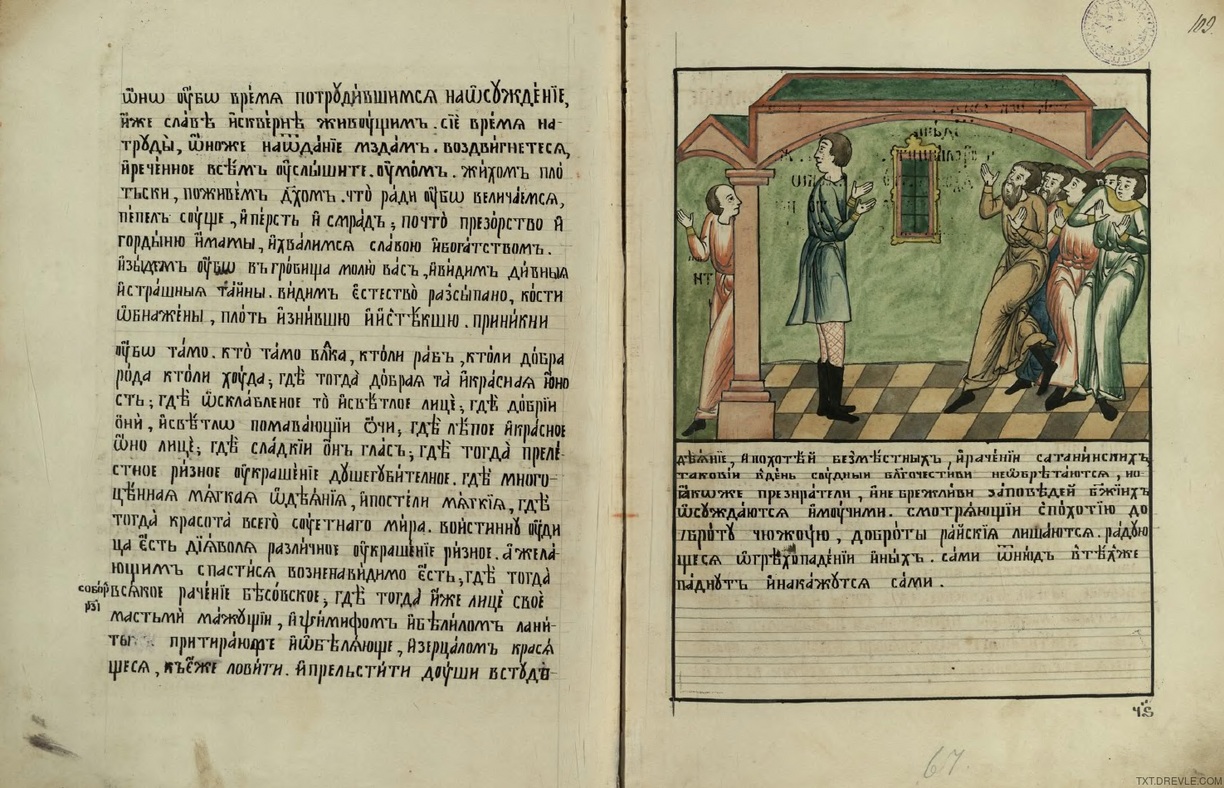 ѿнѡ оу҆бѡ время потрꙋди́вшимся наѡ҆сꙋжде́нїе,
и҆́же сла́вѣ и҆скве́рнѣ живꙋ́щимъ. сїѐ вре́мя на-
трꙋды̀, ѿноже наѿда́нїе мзда́мъ. воздви́гнетеся,
и҆рече́нное всѣ́мъ оу҆слы́шите. оу҆мо́мъ. жи́хомъ пло
тьски, поживе́мъ дх҃омъ. что̀ ра́ди оу҆́бѡ велича́емся,
пе́пелъ сꙋ́ще, и҆пе́рсть и҆ смра́дъ; почто̀ презо́рство и҆
горды́ню и҆́мамы, и҆хва́лимся сла́вою и҆бога́тствомъ.
и҆зы́демъ оу҆́бѡ въгро́бища молю̀ ва́съ, и҆ви́димъ ди́вныя
и҆стра́шныя та́йны. ви́димъ є҆стество̀ разсы́пано, ко́сти
ѡ҆бнаже́ны, пло́ть и҆згни́вшю и҆и҆сте́кшю. прини́кни
оу҆́бѡ та́мо. кто̀ та́мо вл҃ка, кто́ли ра́бъ, кто́ли до́бра
ро́да кто́ли хꙋ́да; гдѣ̀ тогда̀ до́брая та̀ и҆кра́сная ю҆но
сть; гдѣ̀ ѡ҆скла́бленое то̀ и҆свѣ́тлое лицѐ; гдѣ̀ до́брїи
ѻ҆нѝ, и҆свѣ́тлѡ помава́ющїи ѻ҆́чи; гдѣ̀ лѣ́пое и҆кра́сное
ѿно лицѐ; гдѣ̀ сла́дкїи ѻ҆́нъ гла́съ; гдѣ̀ тогда̀ преле́
стное ри́зное оу҆краше́нїе дꙋшегꙋби́тельное. гдѣ̀ много-
цѣ́нная мя́гкая ѡ҆дѣя́нїя, и҆посте́ли мя́гкїя, гдѣ̀
тогда̀ красота̀ всего̀ сꙋ́етнаго ми́ра. вои́стиннꙋ оу҆́ди
ца є҆́сть дїя́воля разли́чное оу҆краше́нїе ри́зное. а҆жела́-
ющимъ спасти́ся возненави́димо є҆́сть; гдѣ̀ тогда̀
собор҄
рз҃і
вся́кое раче́нїе бѣсо́вское; гдѣ̀ тогда̀ и҆́же лицѐ своѐ
мастьмѝ ма́жꙋщїи, и҆ѱи́миѳомъ и҆бѣли́ломъ лани́-
ты притира́юще и҆ѡ҆бѣля́юще, и҆зерца́ломъ крася́
щеся, къє҆́же лови́ти. и҆прельсти́ти дꙋ́ши встꙋдо-
109.
дѣ́яніе, и҆по́хотѣй безмѣ́стныхъ, и҆раче́нїи сатани́нскихъ
таковїи вде́нь сꙋ́дныи бл҃гочести́ви неѡ҆брѣта́ются, но
ꙗ҆́коже презира́тели, и҆небрежли́ви за́повѣдей бж҃їихъ
ѡ҆сꙋжда́ются и҆мꙋ́чими. смотря́ющїи спо́хотїю до
бро́тꙋ чюжо́ую, добро́ты ра́йскїя лиша́ются. ра́дꙋю
щеся ѡ҆грѣхопаде́нїи и҆ны́хъ. са́ми ѿню́дъ втѣ́хже
падꙋ́тъ и҆нака́жꙋтся са́ми.
ч҃ѕ
67.
TXT.DREVLE.COM